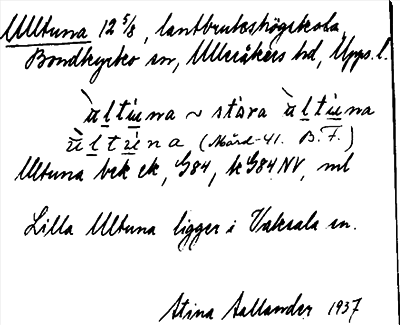 Ulltuna 12 5/8, lantbrukshögskola,
Bondkyrko sn, Ulleråkers hd, Upps. l.
ùltuna ~ stóra ùltuna
ùltuna (Mård-41. B.F.)
Ultuna bek ek, G84, k G84 NV, ml
Lilla Ultuna ligger i Vaksala sn.
Stina Aallander 1937